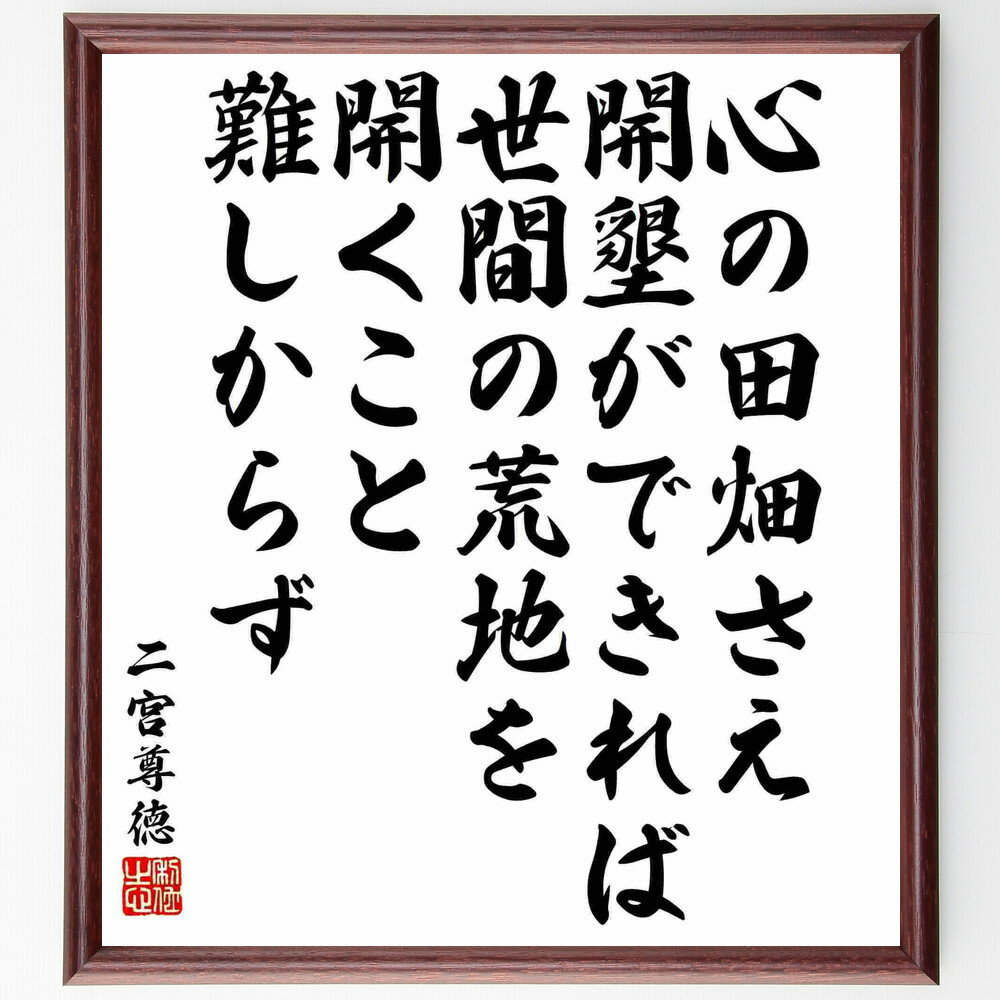 心の田畑さえ
開墾ができれば
世間の荒地を
開くこと
難しからず
二宮尊徳